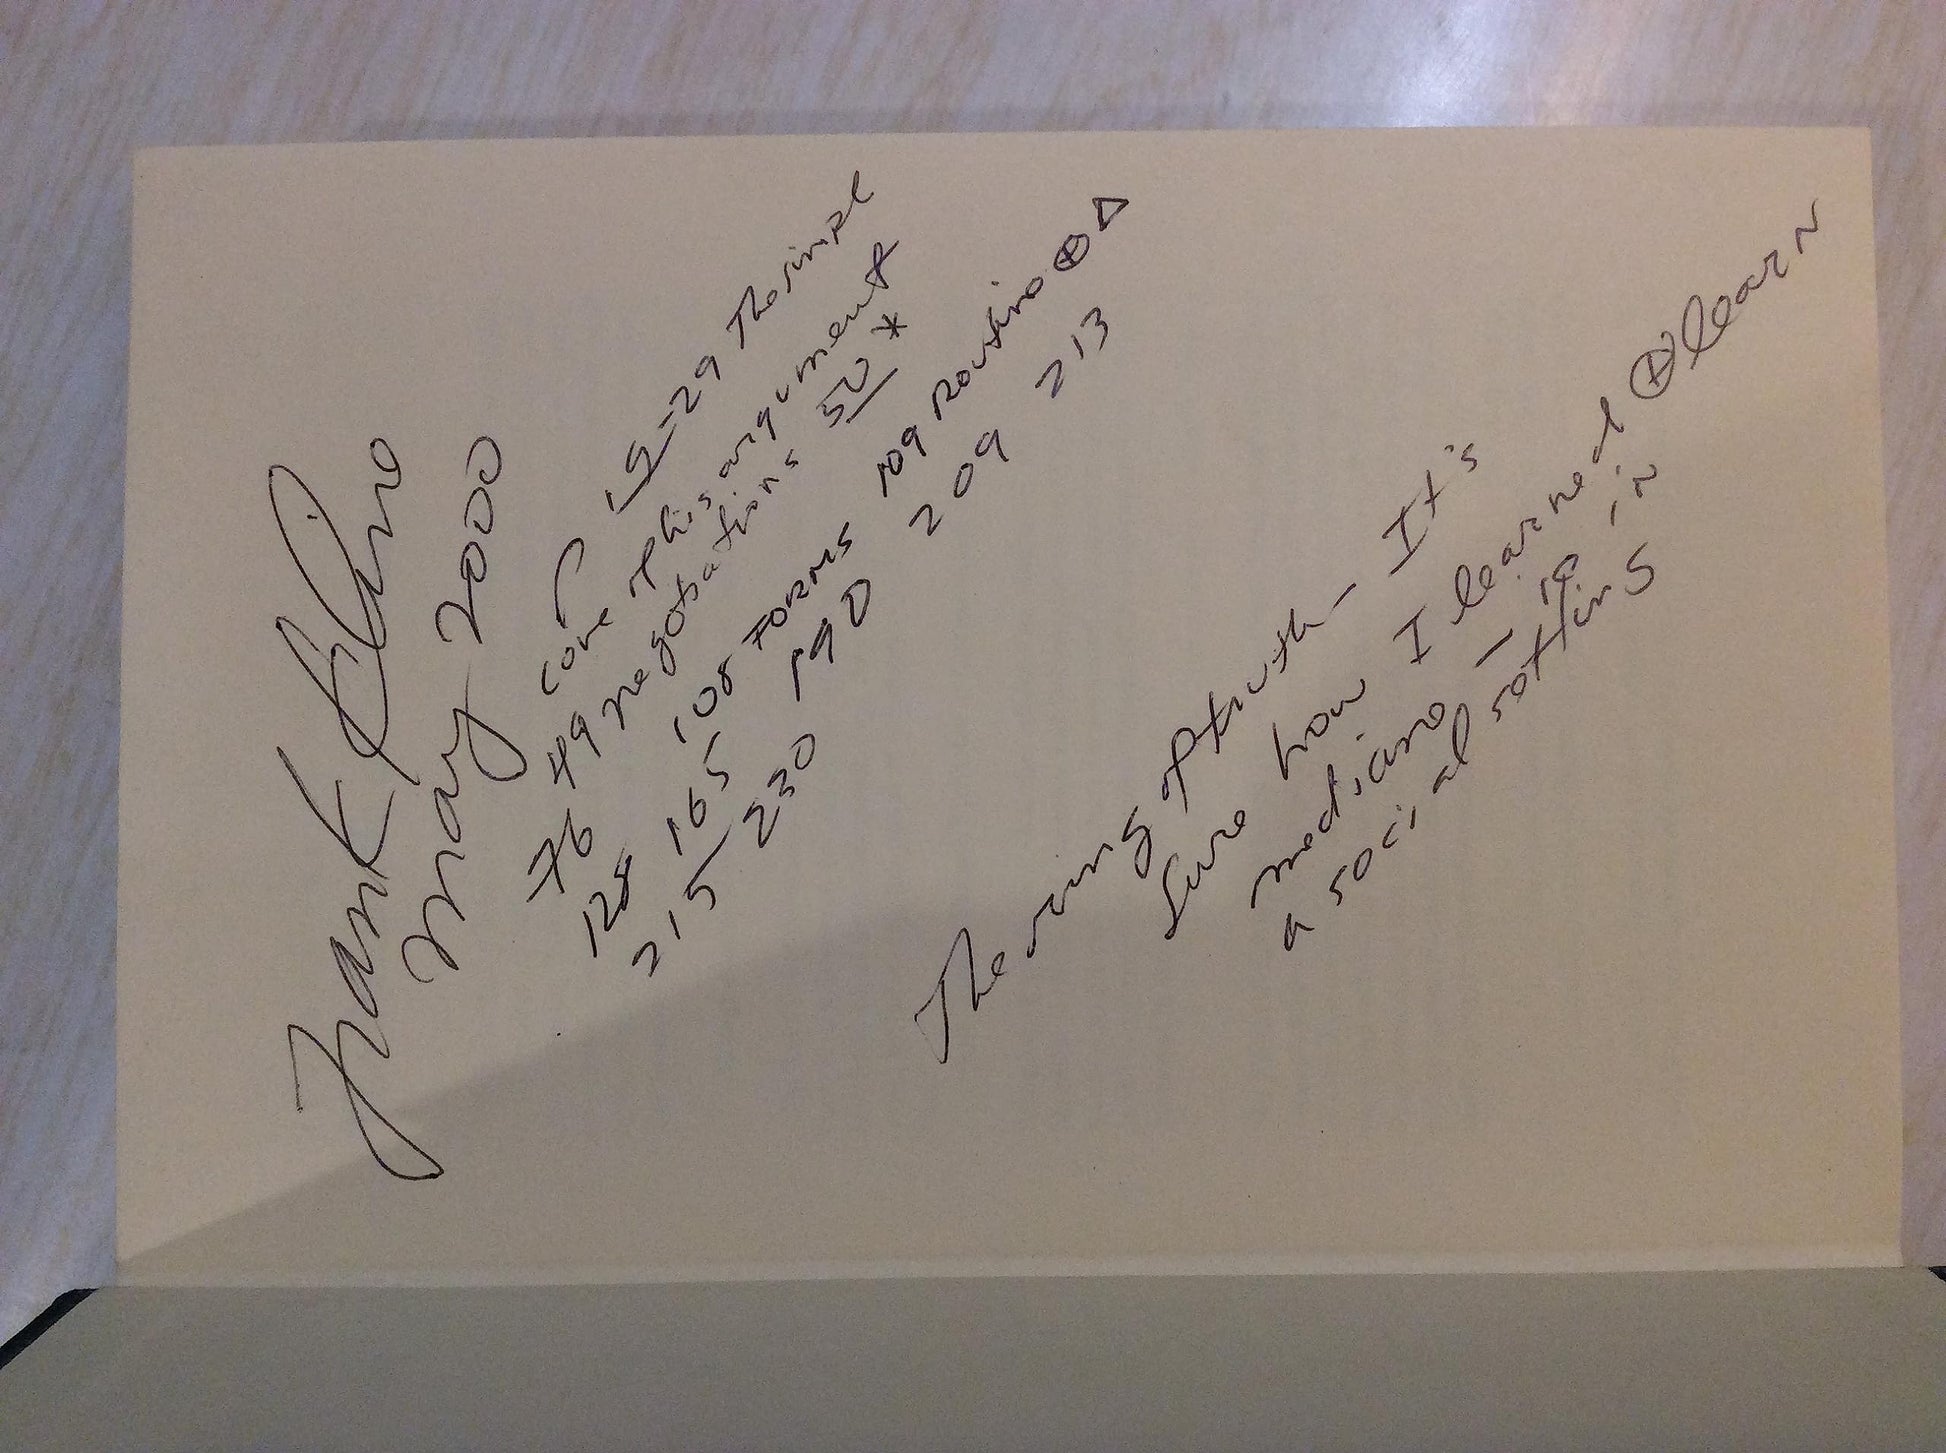 Frank
May 2000
15-29 The simple
core of his argument
49 negotiations 50 *
76 108 FORMS 109 Routine ⊕ Δ
128 165 190 209 213
215 230
The ring of truth — It's
sure how I learned ⊕ learn
medicine — ie in
a social setting